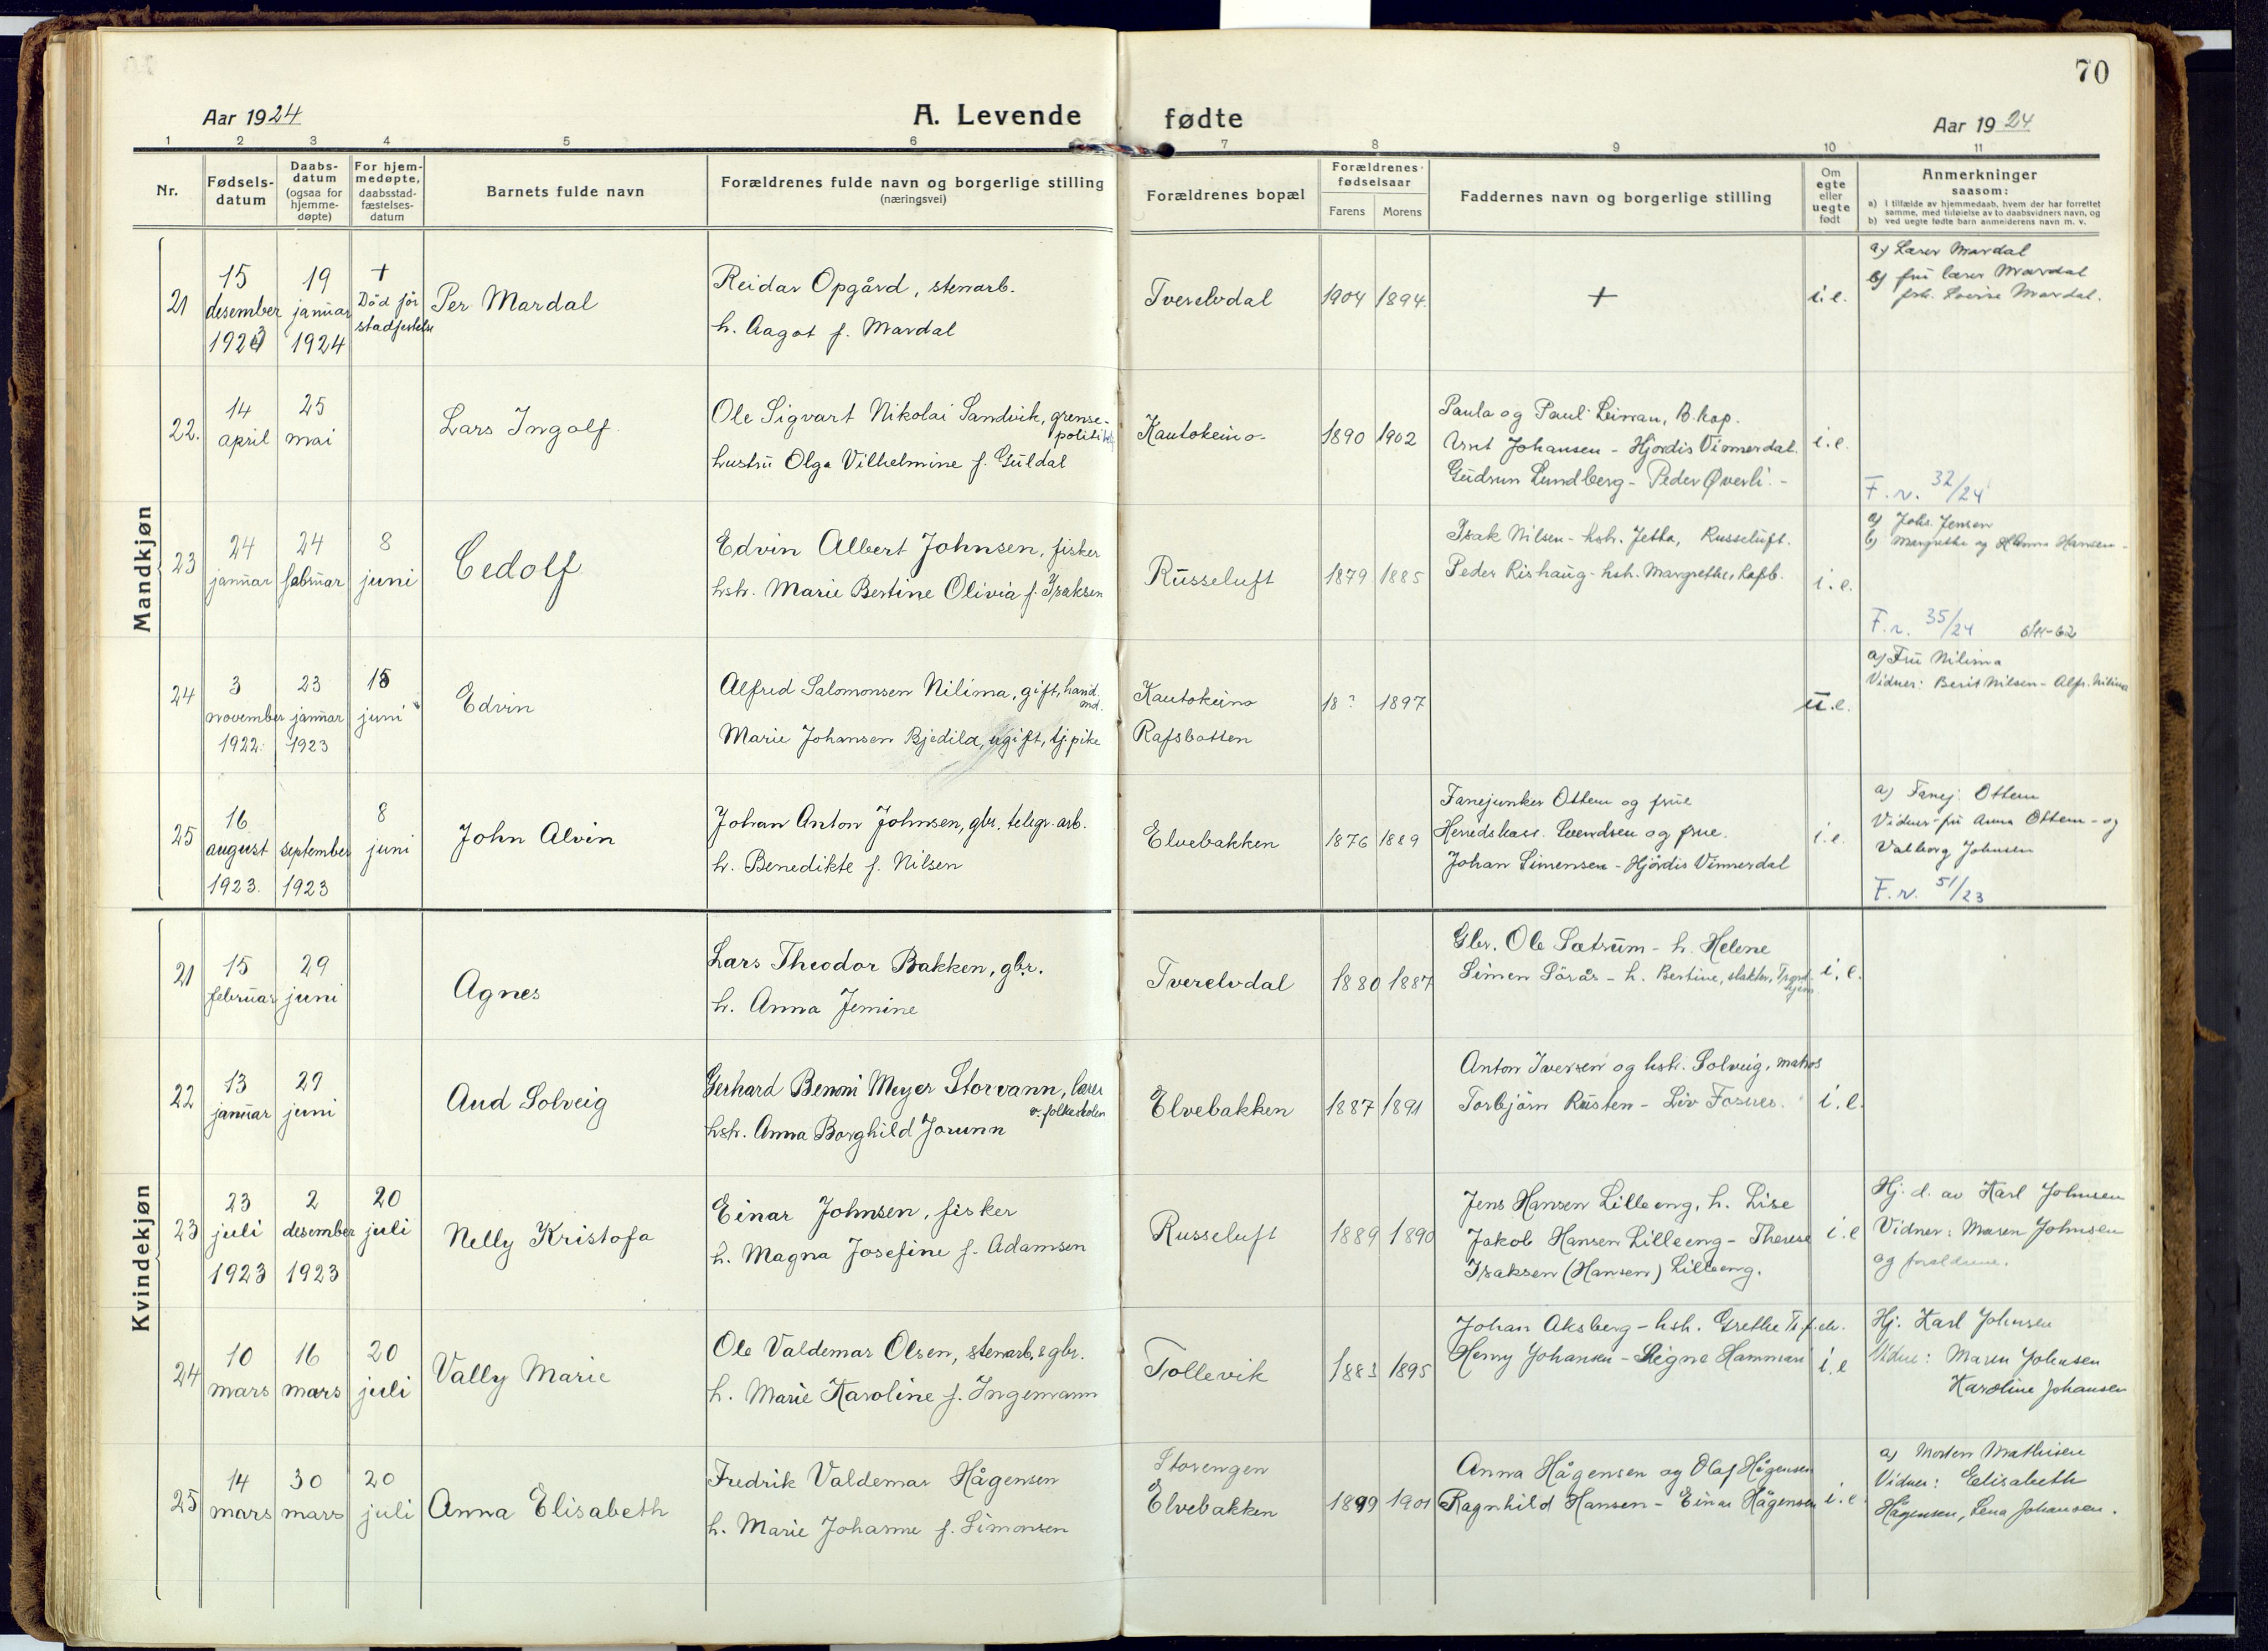 70
Aar 1924
A. Levende fødte
Aar 1924
1 2 3 4 5 6 7 8 9 10 11
Nr.
Fødsels-datum
Daabs-datum (ogsaa for hjemme-døpte)
For hjem-medøpte, daabsstad-fæstelses-datum
Barnets fulde navn
Forældrenes fulde navn og borgerlige stilling
(næringsvei)
Forældrenes bopæl
Forældrenes fødselsaar
Farens Morens
Faddernes navn og borgerlige stilling
Om egte eller uegte født
Anmerkninger
saasom:
a) i tilfælde av hjemmedaab, hvem der har forrettet samme, med tilføielse av to daabsvidners navn, og
b) ved uegte fødte barn anmelderens navn m. v.
Mandkjøn
21
15 desember 1923
19 januar 1924
+ Död för stadfestelse
Per Mardal
Reidar Opgård, stenarb.
h. Aagot f. Mardal
Tverelvdal
1904 1894.
+
i.e.
a) Lærer Mardal
b) fru lærer Mardal
Mardal.
22.
14 april
25 mai
Lars Ingolf
Ole Sigvart Nikolai Sandvik, grense-politi
hustru Olga Vilhelmine f. Guldal
Kautokeino
1890 1902
Paula og Paul Leinan, B. kap.
Arnt Johansen - Hjördis Vinnerdal.
Gudrun Lundberg - Peder Øverli. -
i.e.
F. r. 32/24
23
24 januar
24 februar
8 juni
Cedolf
Edvin Albert Johnsen, fisker
hstr. Marie Bertine Olivia f. Isaksen
Russeluft
1879 1885
Isak Nilsen - hstr. Jetta, Russeluft.
Peder Rishaug - hstr. Margrethe, Rafsb.
i.e.
a) Johs. Jensen
b) Margrethe og Hansen
F. r. 35/24
24
3 november 1922.
23 januar 1923
15 juni
Edvin
Alfred Salomonsen Nilima, gift, hand.
Marie Johansen Bjedild, ugift, tj.pike
Kautokeino
Rafsbotten
18? 1897
u.e.
a) Fru Nilima
Vidner: Berit Nilsen - Alfr. Nilima
25
16 august 1923.
september 1923
8 juni
John Alvin
Johan Anton Johnsen, gbr, telegr. arb.
h. Benedikte f. Nilsen
Elvebakken
1876 1889
Fanejunker Ottem og frue
Herredskass. Svendsen og frue.
Johan Simensen - Hjördis Vinnerdal
i.e.
a) Fanej. Ottem
Vidner - fru Anna Ottem - og
Valborg Johnsen
F. r. 51/23
Kvindekjøn
21
15 februar
29 juni
Agnes
Lars Theodor Bakken, gbr.
h. Anna Jemine
Tverelvdal
1880 1887
Gbr. Ole Sætrum - h. Helene
Simen Sörås - h. Bertine, slakter,
i.e.
22
13 januar
29 juni
Aud Solveig
Gerhard Benoni Meyer Storvann, lærer
v. folkeskolen
hstr. Anna Borghild Jorunn
Elvebakken
1887 1891
Anton Iversen og hstr. Solveig, matros
Torbjörn Rusten - Liv Fosnes.
i.e.
23
23 juli 1923
2 desember 1923
20 juli
Nelly Kristofa
Einar Johnsen, fisker
h. Magna Josefine f. Adamsen
Russeluft
1889 1890
Jens Hansen Lilleeng, h. Lise
Jakob Hansen Lilleeng - Therese
Isaksen (Hansen) Lilleeng.
i.e
Hj. d. av Karl Johnsen
Vidner: Maren Johnsen
og foreldrene.
24
10 mars
16 mars
20 juli
Vally Marie
Ole Valdemar Olsen, stenarb. & gbr.
h. Marie Karoline f. Ingemann
Tollevik
1883 1895
Johan Aksberg - hstr. Grethe
Henry Johansen - Signe Hammari
i.e
Hj. Karl Johnsen
Vidne: Maren Johnsen
Karoline Johansen
25
14 mars
30 mars
20 juli
Anna Elisabeth
Fredrik Valdemar Hågensen
h. Marie Johanne f. Simonsen
Storengen
Elvebakken
1899 1901
Anna Hågensen og Olaf Hågensen
Ragnhild Hansen - Einar Hågensen
i.e.
a) Morten Mathisen
Vidner: Elisabeth
Hågensen, Lena Johansen.